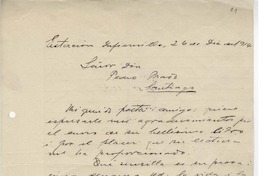 Estación Infiernillo, 26 de Dic del 914
Señor Don
Pedro Prado
Santiago
Mi querido poeta i amigo: quiero
expresarle mis agradecimientos por
el envío de su bellísimo libro
i por el placer que su lectura
me ha proporcionado.
Qué sencilla es su prosa i